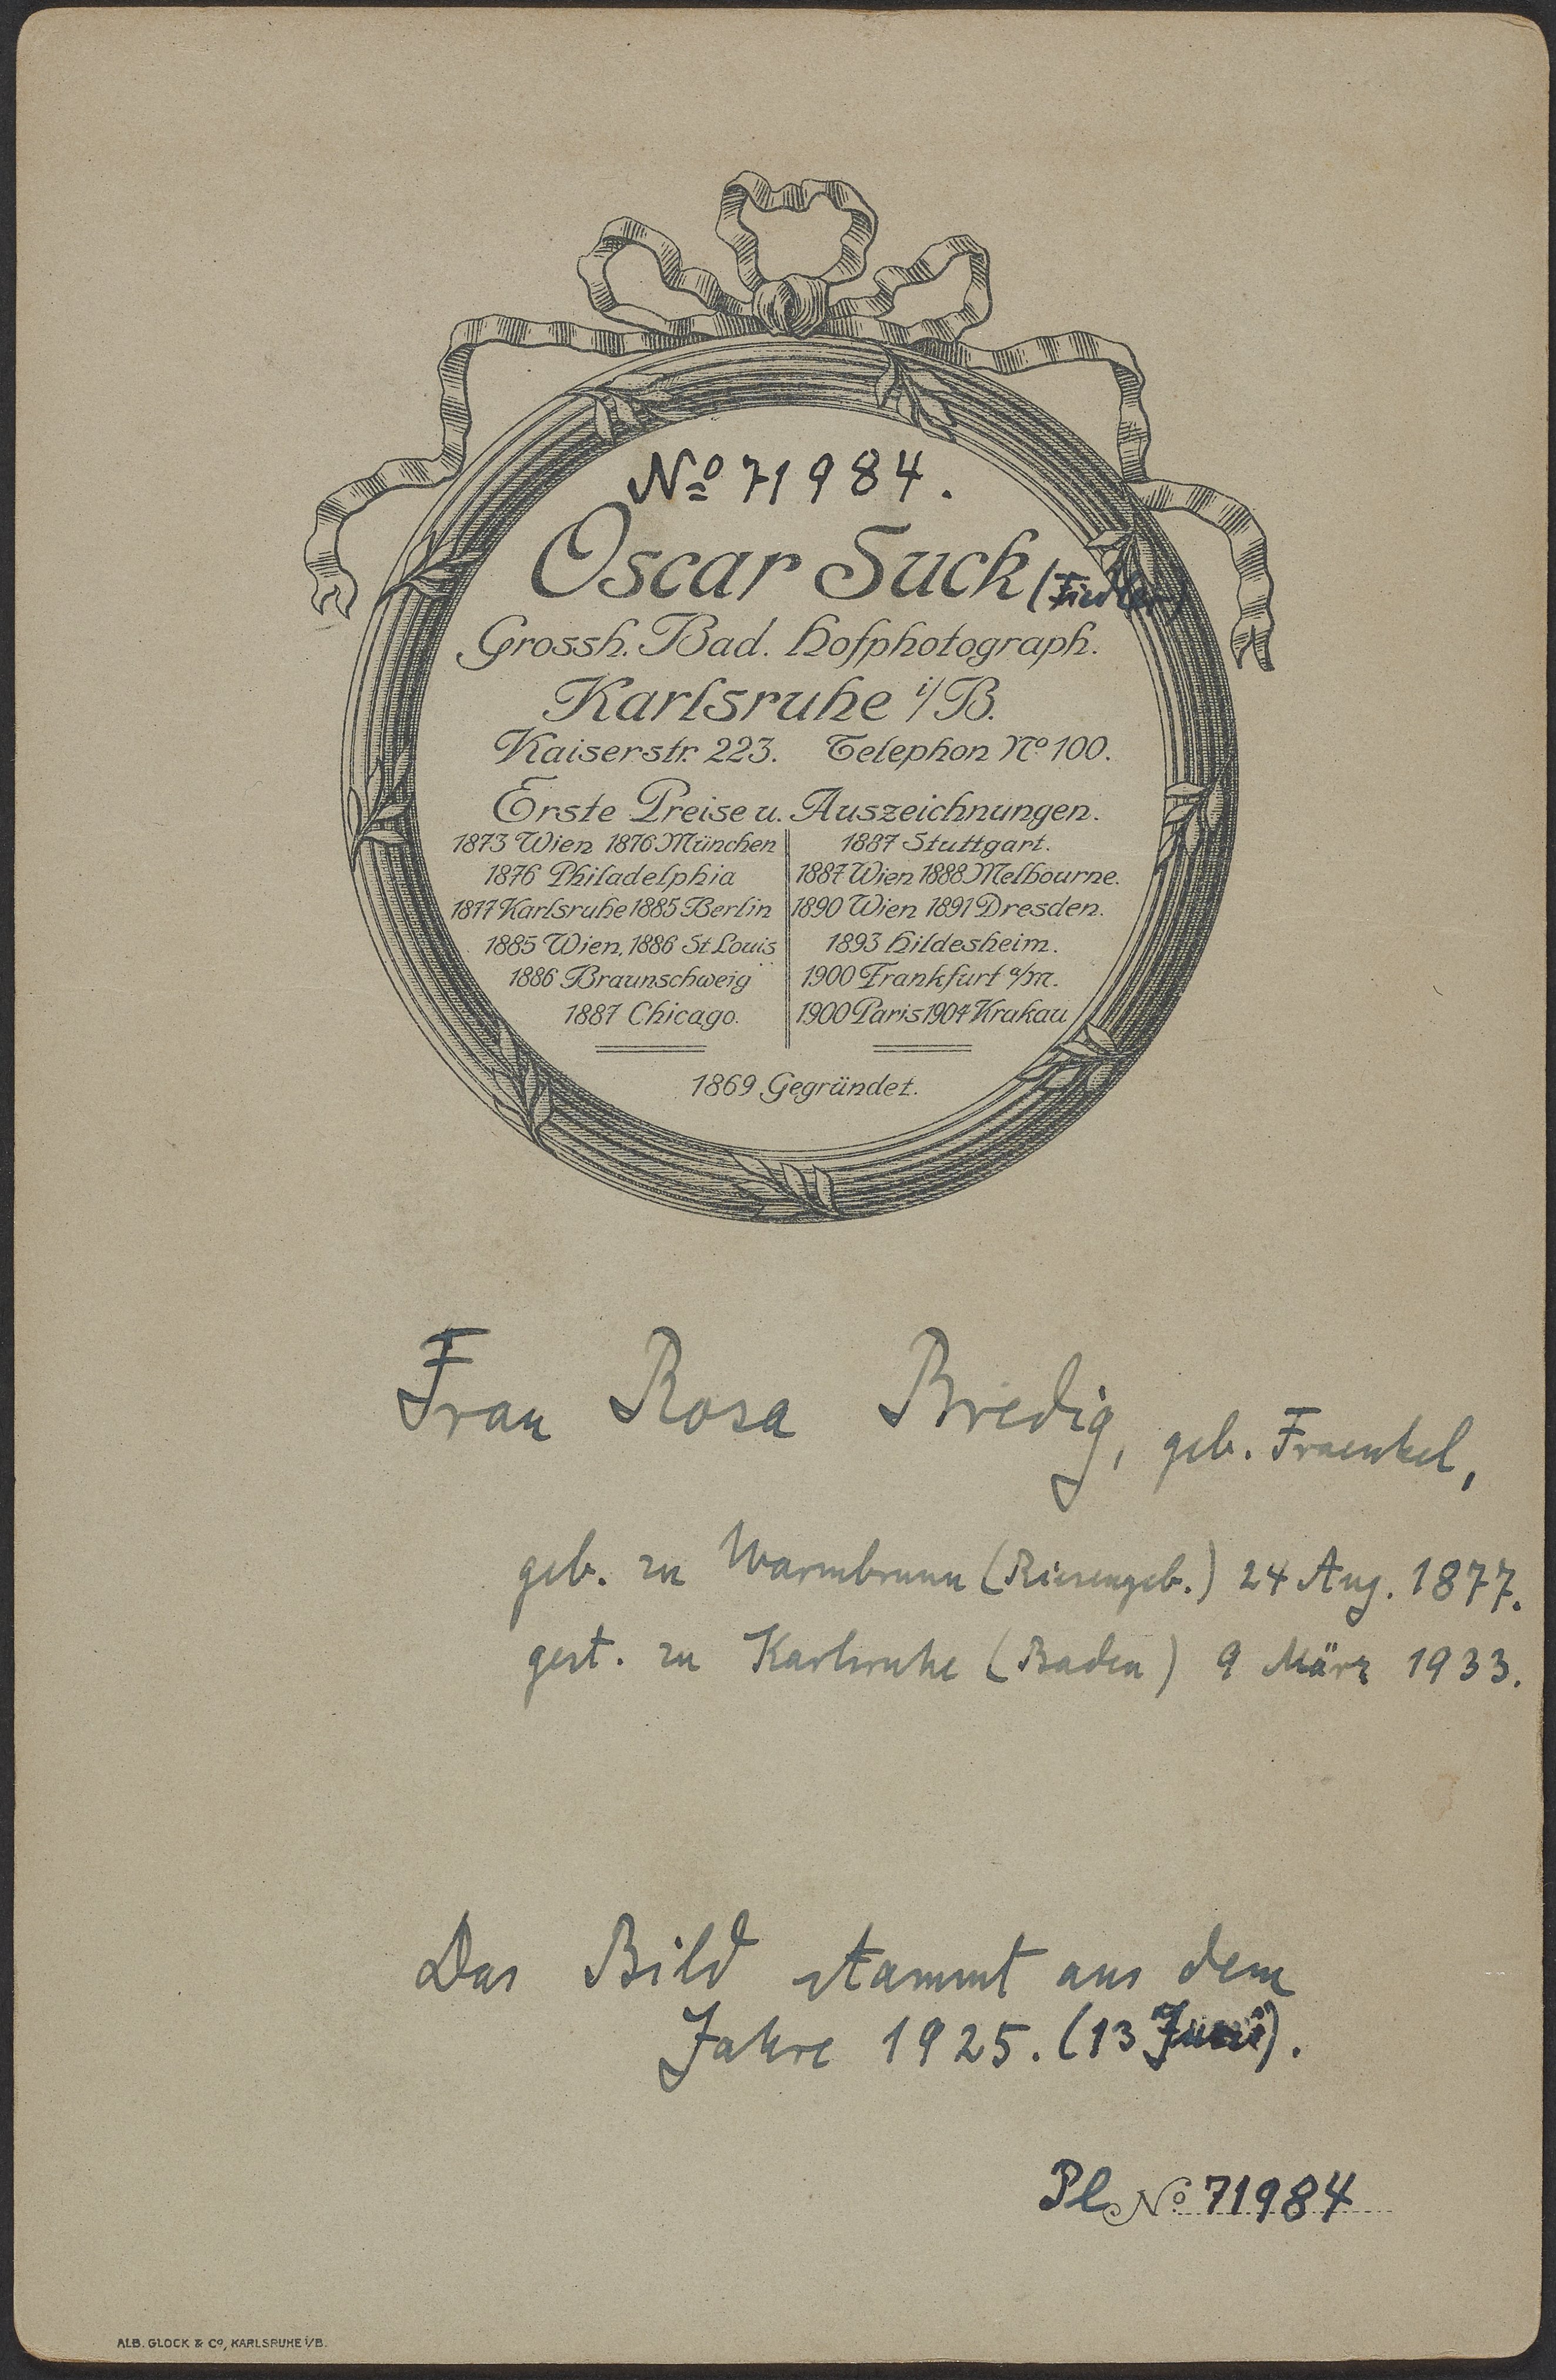 No 71984.
Oscar Suck (Fiedler)
Grossh. Bad. Hofphotograph.
Karlsruhe i/B.
Kaiserstr. 223. Telephon No 100.
Erste Preise u. Auszeichnungen.
1873 Wien 1876 München
1876 Philadelphia
1877 Karlsruhe 1885 Berlin
1885 Wien, 1886 St Louis
1886 Braunschweig
1887 Chicago.
1887 Stuttgart.
1887 Wien 1888 Melbourne.
1890 Wien 1891 Dresden.
1893 Hildesheim.
1900 Frankfurt a/M.
1900 Paris 1904 Krakau
1869 Gegründet.
Frau Rosa Bredig, geb. Fraenkel,
geb. zu Warmbrunn (Riesengeb.) 24 Aug. 1877.
gest. zu Karlsruhe (Baden) 9 März 1933.
Das Bild stammt aus dem
Jahre 1925. (13 Juni).
Pl No 71984
ALB. GLOCK & Co, KARLSRUHE i/B.